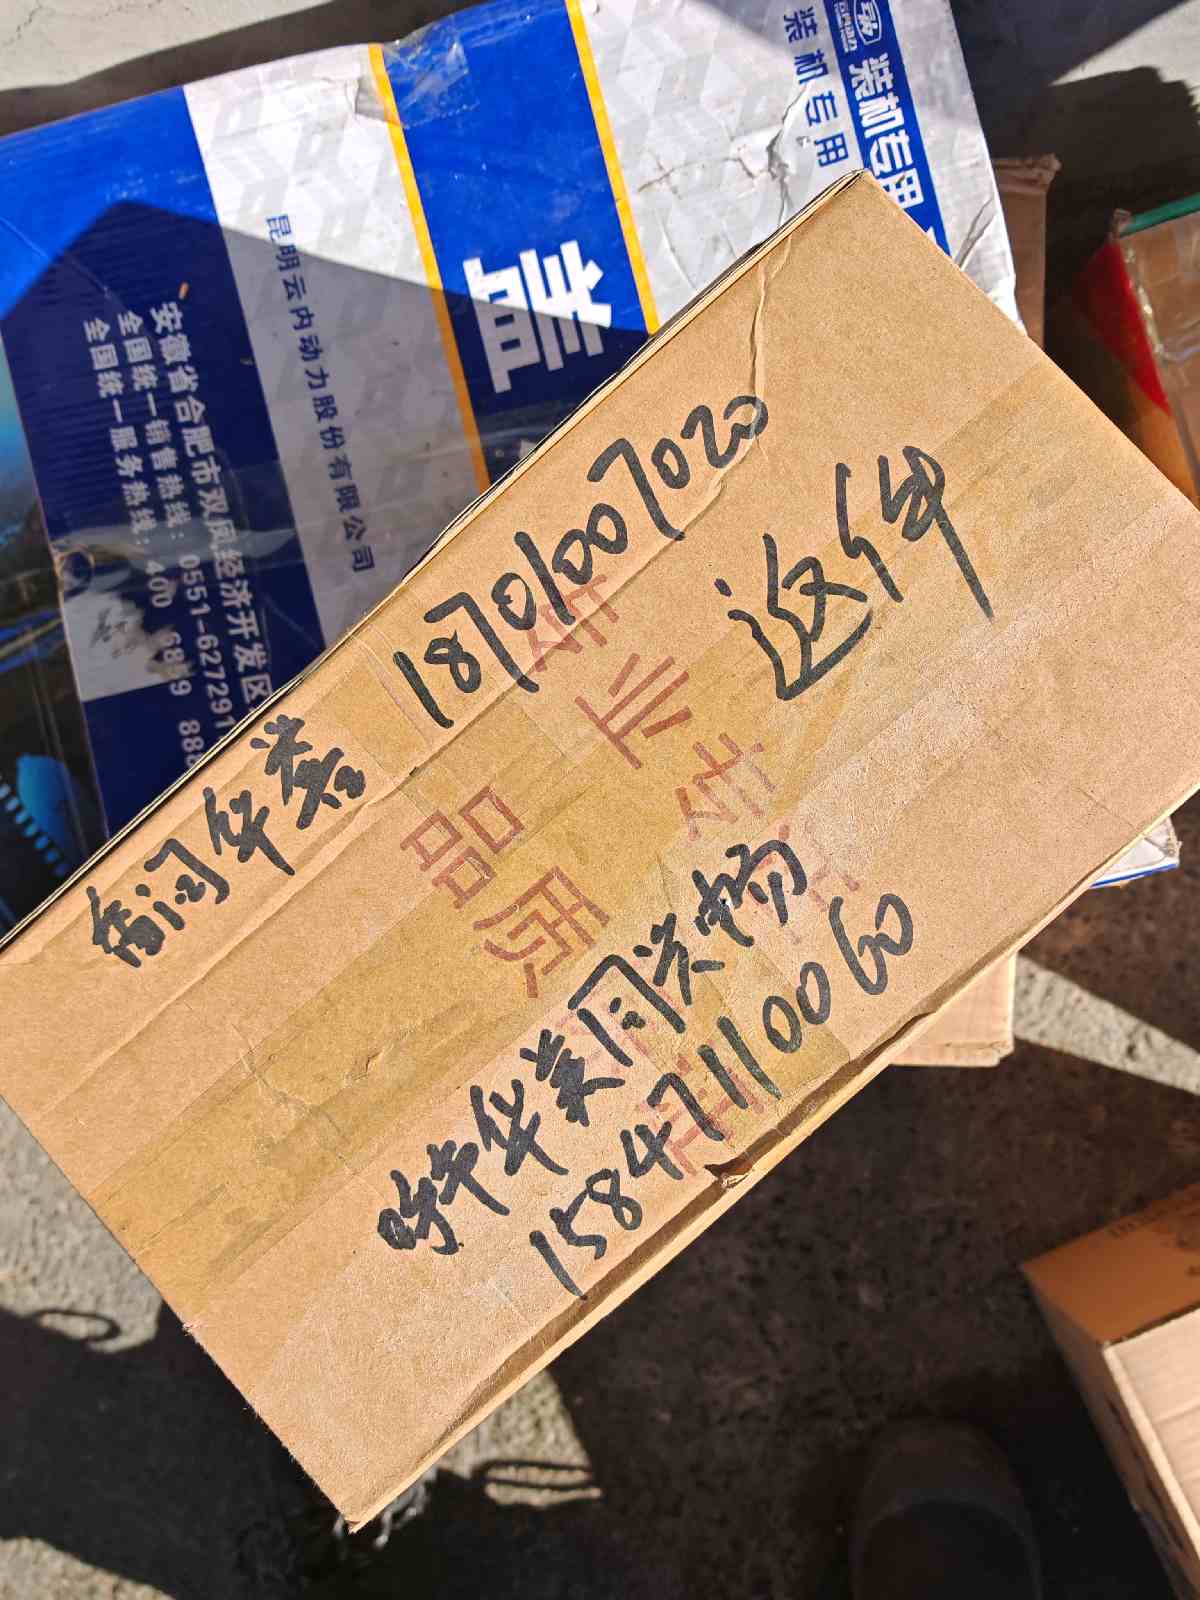 装机专用
装机专用
盖
昆明云内动力股份有限公司
安徽省合肥市双凤经济开发区
全国统一销售热线: 0551-627291
全国统一服务热线: 400 6879 888
华誉 18701007020
返件
专业
品质
呼华美周洪畅
15847110060